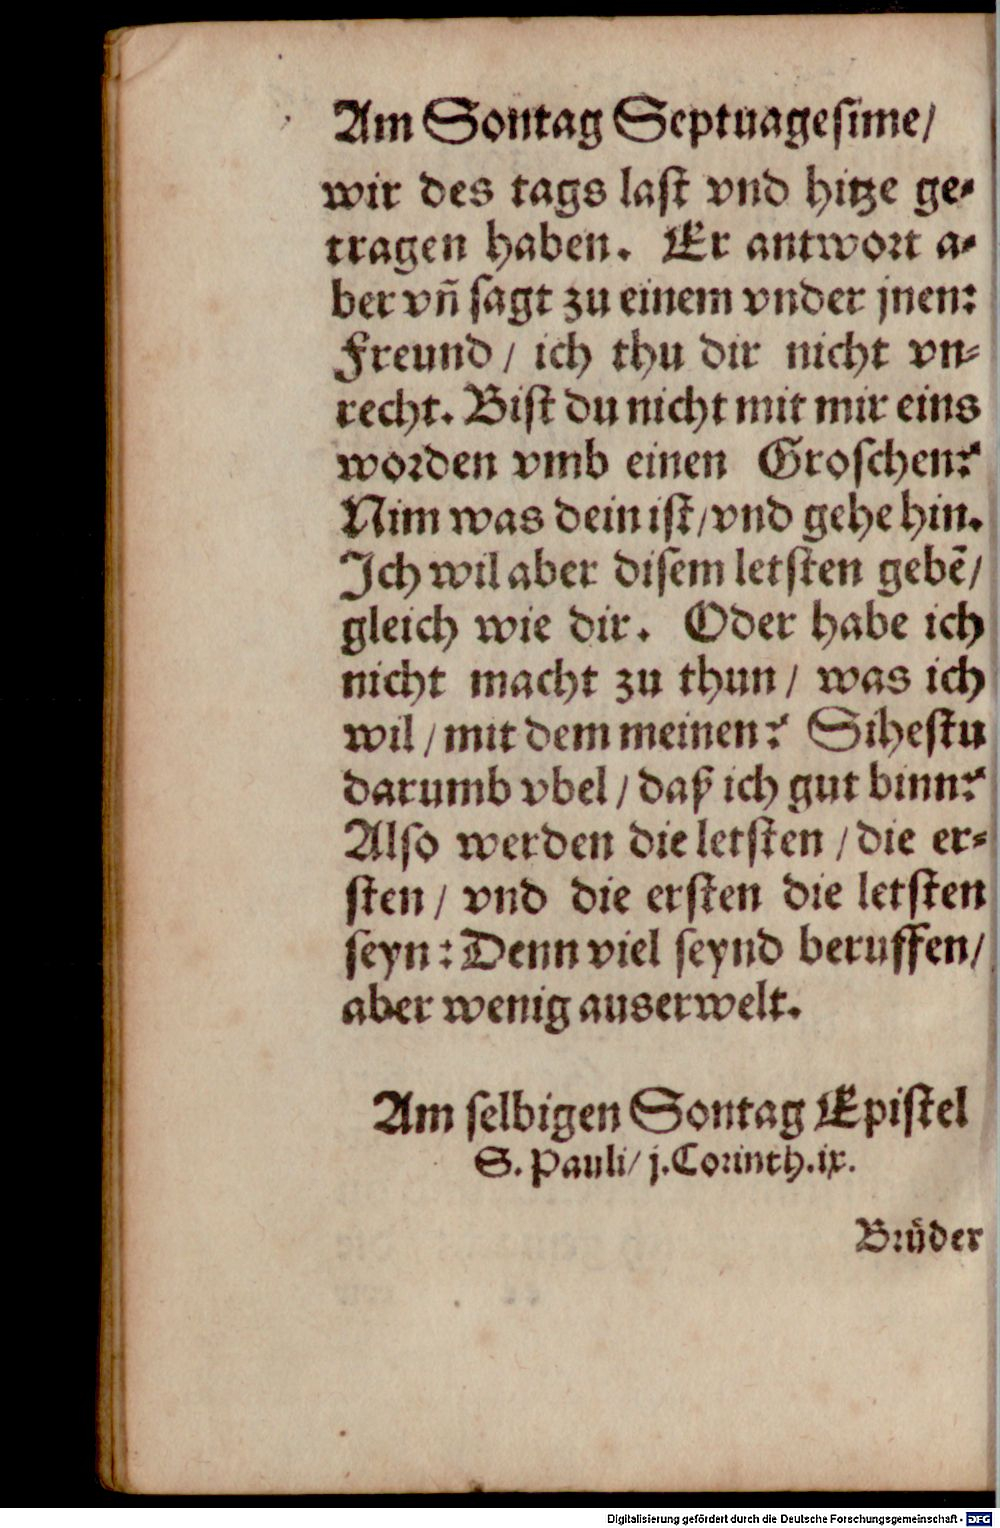 Am Sontag Septuagesime/
wir des tags last vnd hitze ge-
tragen haben. Er antwort a-
ber vñ sagt zu einem vnder jnen:
Freund / ich thu dir nicht vn-
recht. Bist du nicht mit mir eins
worden vmb einen Groschen?
Nim was dein ist/vnd gehe hin.
Ich wil aber disem letsten gebẽ/
gleich wie dir. Oder habe ich
nicht macht zu thun / was ich
wil / mit dem meinen? Sihestu
darumb vbel / daß ich gut binn?
Also werden die letsten / die er-
sten / vnd die ersten die letsten
seyn: Denn viel seynd beruffen/
aber wenig auserwelt.
Am selbigen Sontag Epistel
S. Pauli/ j. Corinth. ix.
Brüder
Digitalisierung gefördert durch die Deutsche Forschungsgemeinschaft - DFG